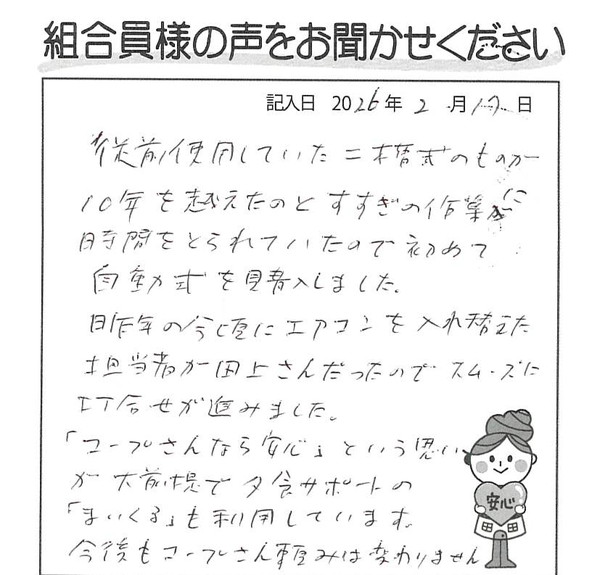 組合員様の声をお聞かせください
記入日 2026年 2 月17日
従前使用していた二槽式のものが
10年を越えたのとすすぎの作業に
時間をとられていたので初めて
自動式を購入しました。
昨年の今頃にエアコンを入れ替えた
担当者が田上さんだったのでスムーズに
打合せが進みました。
「コープさんなら安心」という思い
が大前提で夕食サポートの
「まいくる」も利用しています。
今後もコープさん頼みは変わりません
安心